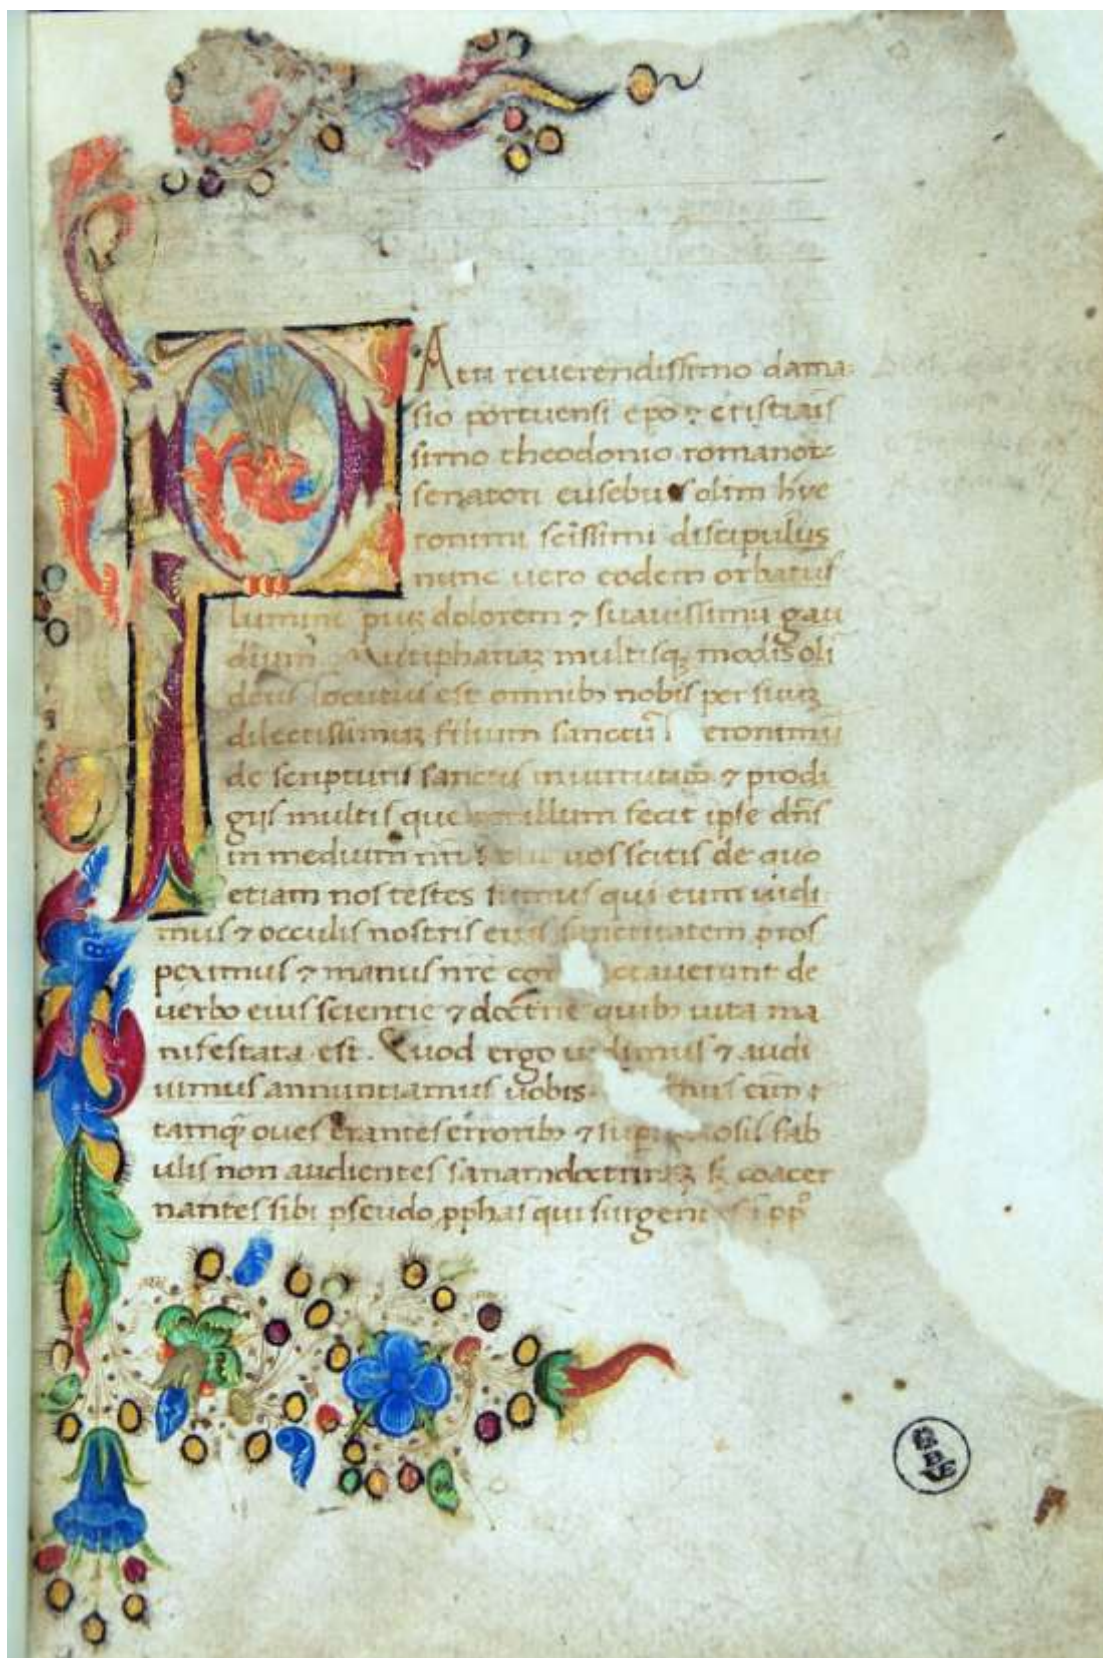 PAtri reuerendissimo dama
sio portuensi epo ⁊ cristiaīs
simo theodonio romanoꝝ
senatori eusebius olim hye
ronimi sc̄issimi discipulus
nunc uero eodem orbatus
lumine piuꝫ dolorem ⁊ suauissimū gau
dium. multisqꝫ modis oli
deus locutus est omnibꝫ nobis per suuꝫ
dilectissimuꝫ filium sanctū eronimū
de scripturis sanctis in uirtutibꝫ ⁊ prodi
gijs multis que per illum fecit ipse dn̄s
in medium uos scitis de quo
etiam nos testes sumus qui eum uidi
mus ⁊ occulis nostris eius sanctitatem pros
peximus ⁊ manus nr̄e con ctauerunt de
uerbo eius scientie ⁊ doctrīe quibꝫ uita ma
nifestata est. Quod ergo uidimus ⁊ audi
uimus annuntiamus uobis.
tamqꝫ oues erantes erroribꝫ ⁊ sup osis fab
ulis non audientes sanam doctrinaꝫ sꝫ coacer
nantes sibi pseudo ꝓphas qui surgent